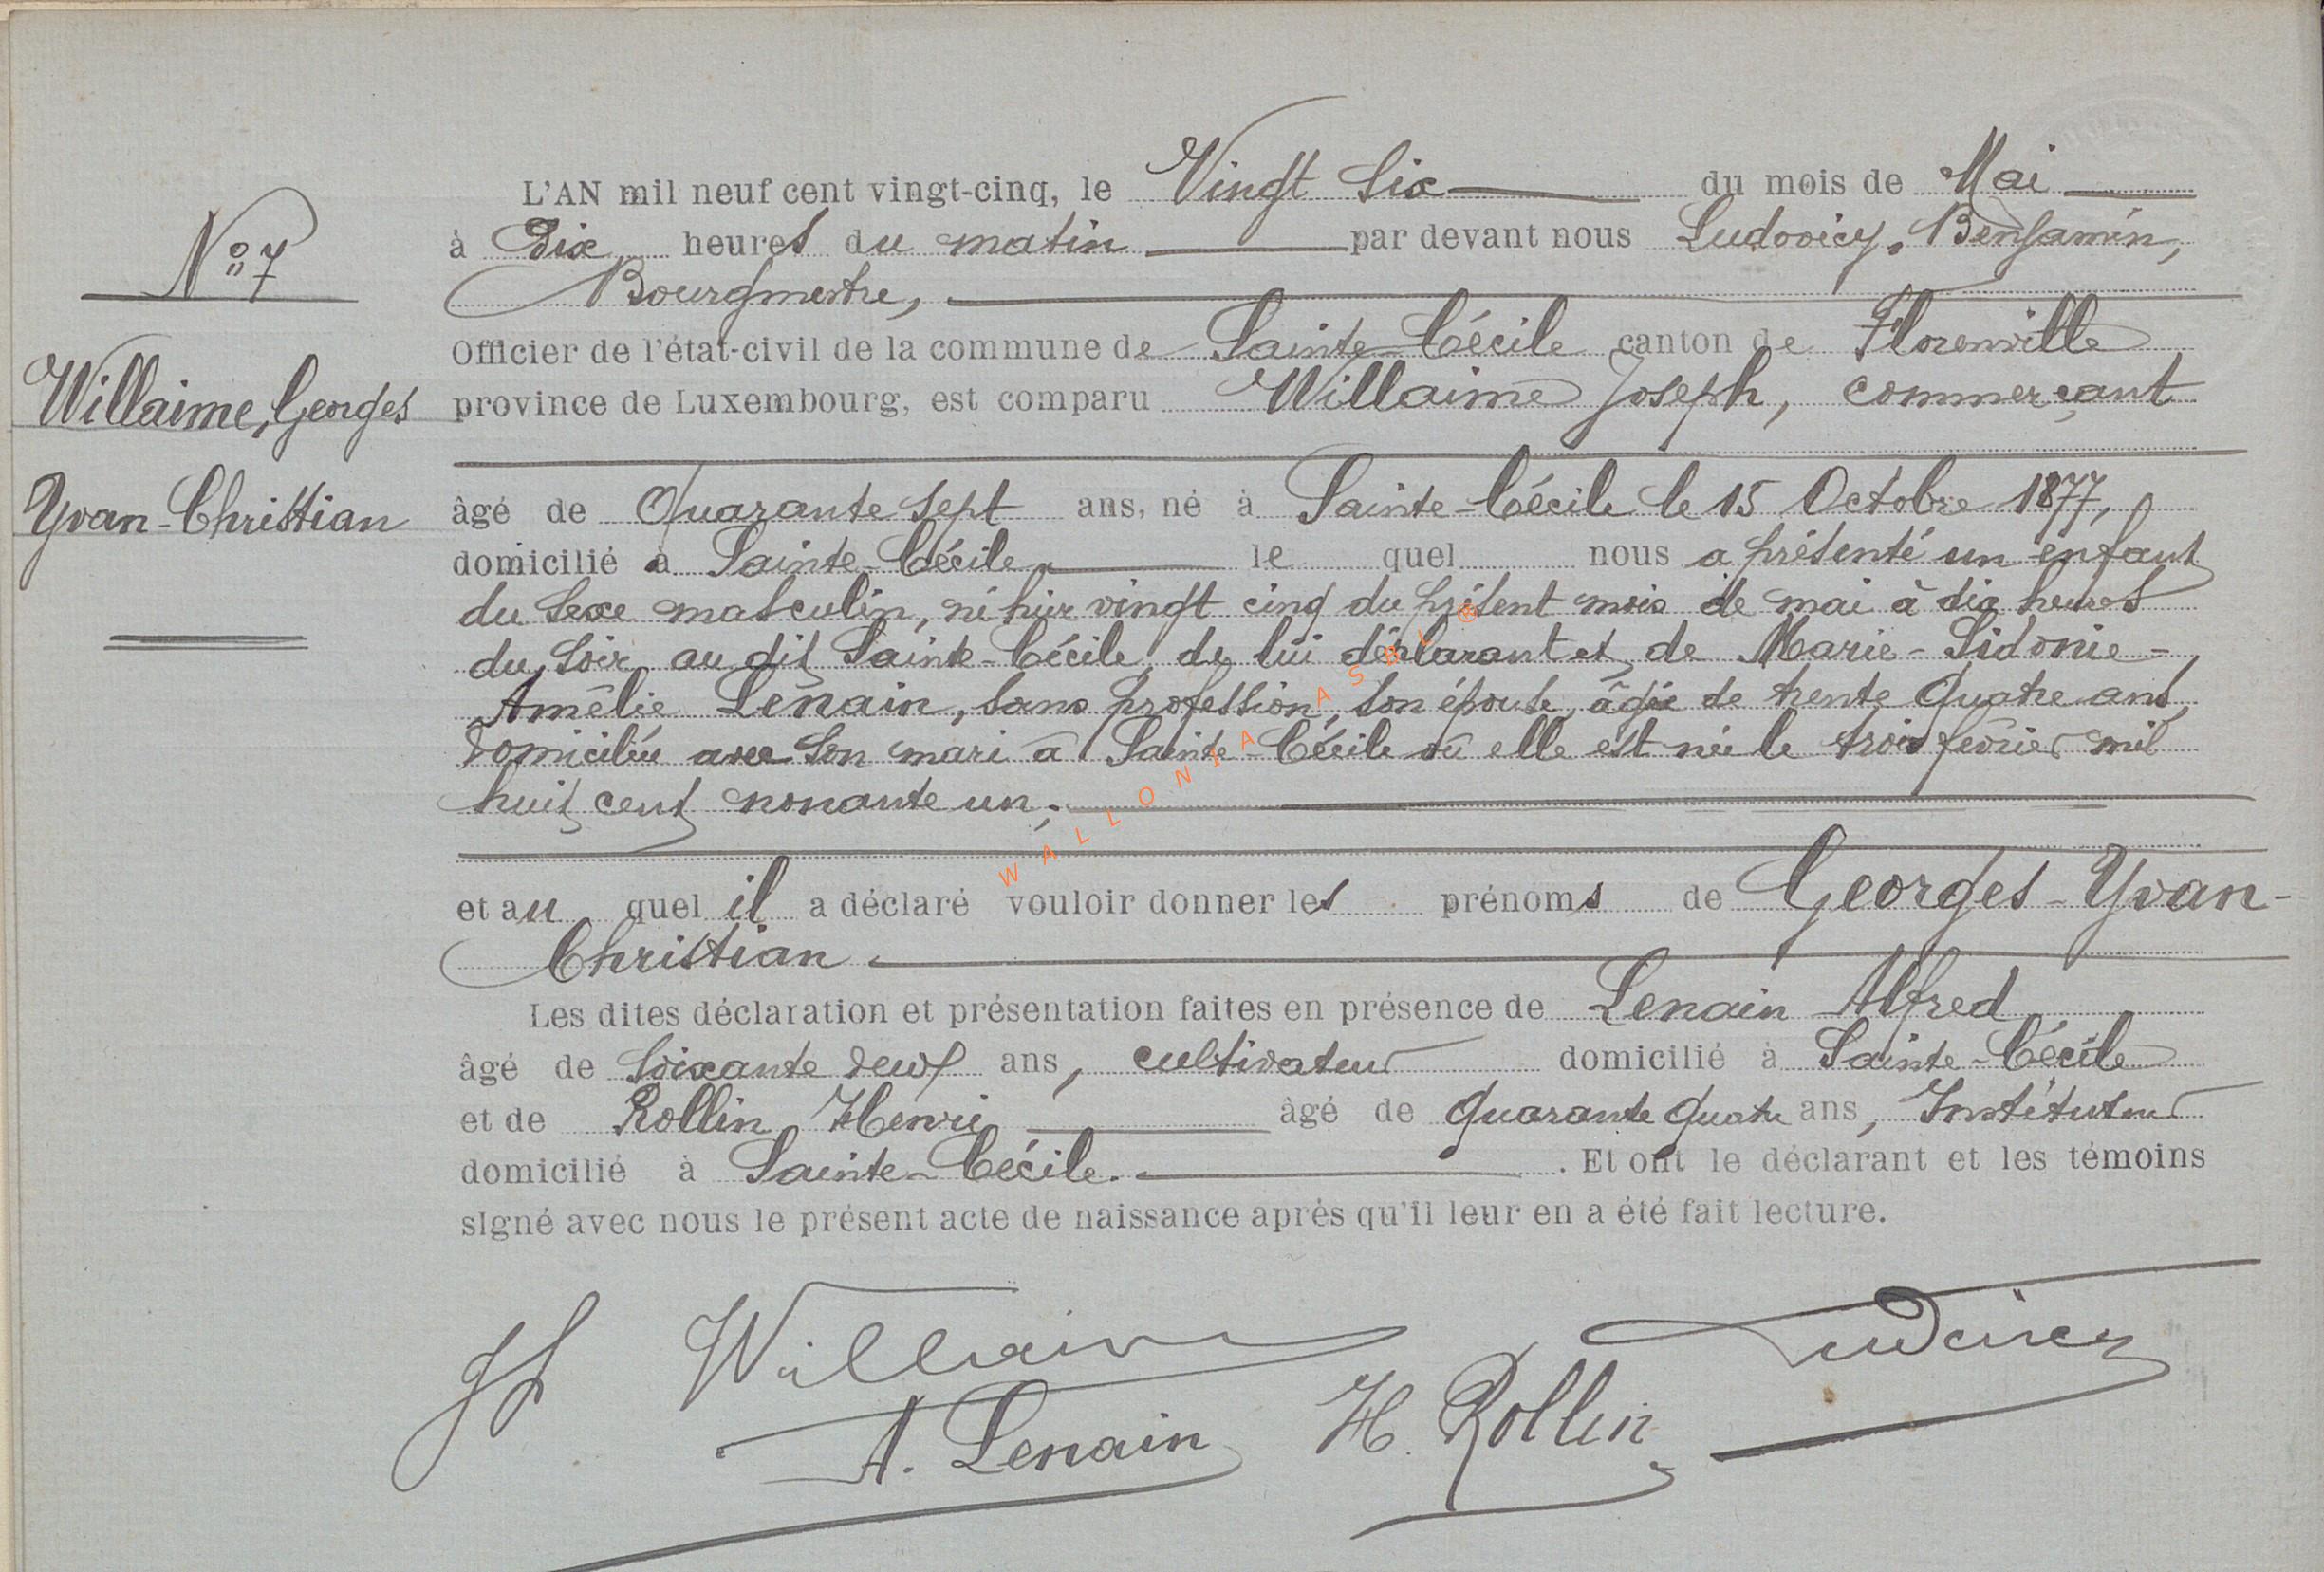 N° 7
Willaime, Georges
Yvan-Christian
L'AN mil neuf cent vingt-cinq, le Vingt Six du mois de Mai
à Dix heures du matin par devant nous Ludovicy, Benjamin,
Bourgmestre,
Officier de l'état-civil de la commune de Sainte-Cécile canton de Florenville
province de Luxembourg, est comparu Willaime Joseph, commerçant
âgé de Quarante Sept ans, né à Sainte-Cécile le 15 Octobre 1877,
domicilié à Sainte-Cécile le quel nous a présenté un enfant
du Sexe masculin, né hier vingt cinq du présent mois de mai à dix heures
du soir au dit Sainte-Cécile, de lui déclarant et de Marie-Sidonie-
Amélie Lenain, sans profession, son épouse, âgée de trente quatre ans,
domiciliée avec son mari à Sainte-Cécile où elle est née le trois février mil
huit cent nonante un,
et au quel il a déclaré vouloir donner les prénoms de Georges-Yvan-
Christian.
Les dites déclaration et présentation faites en présence de Lenain Alfred
âgé de Soixante deux ans, cultivateur domicilié à Sainte-Cécile
et de Rollin Henri âgé de quarante quatre ans, Instituteur
domicilié à Sainte-Cécile. Et ont le déclarant et les témoins
signé avec nous le présent acte de naissance après qu'il leur en a été fait lecture.
Willaime Ludovicy
A. Lenain H. Rollin
WALLONIA ASBL ®